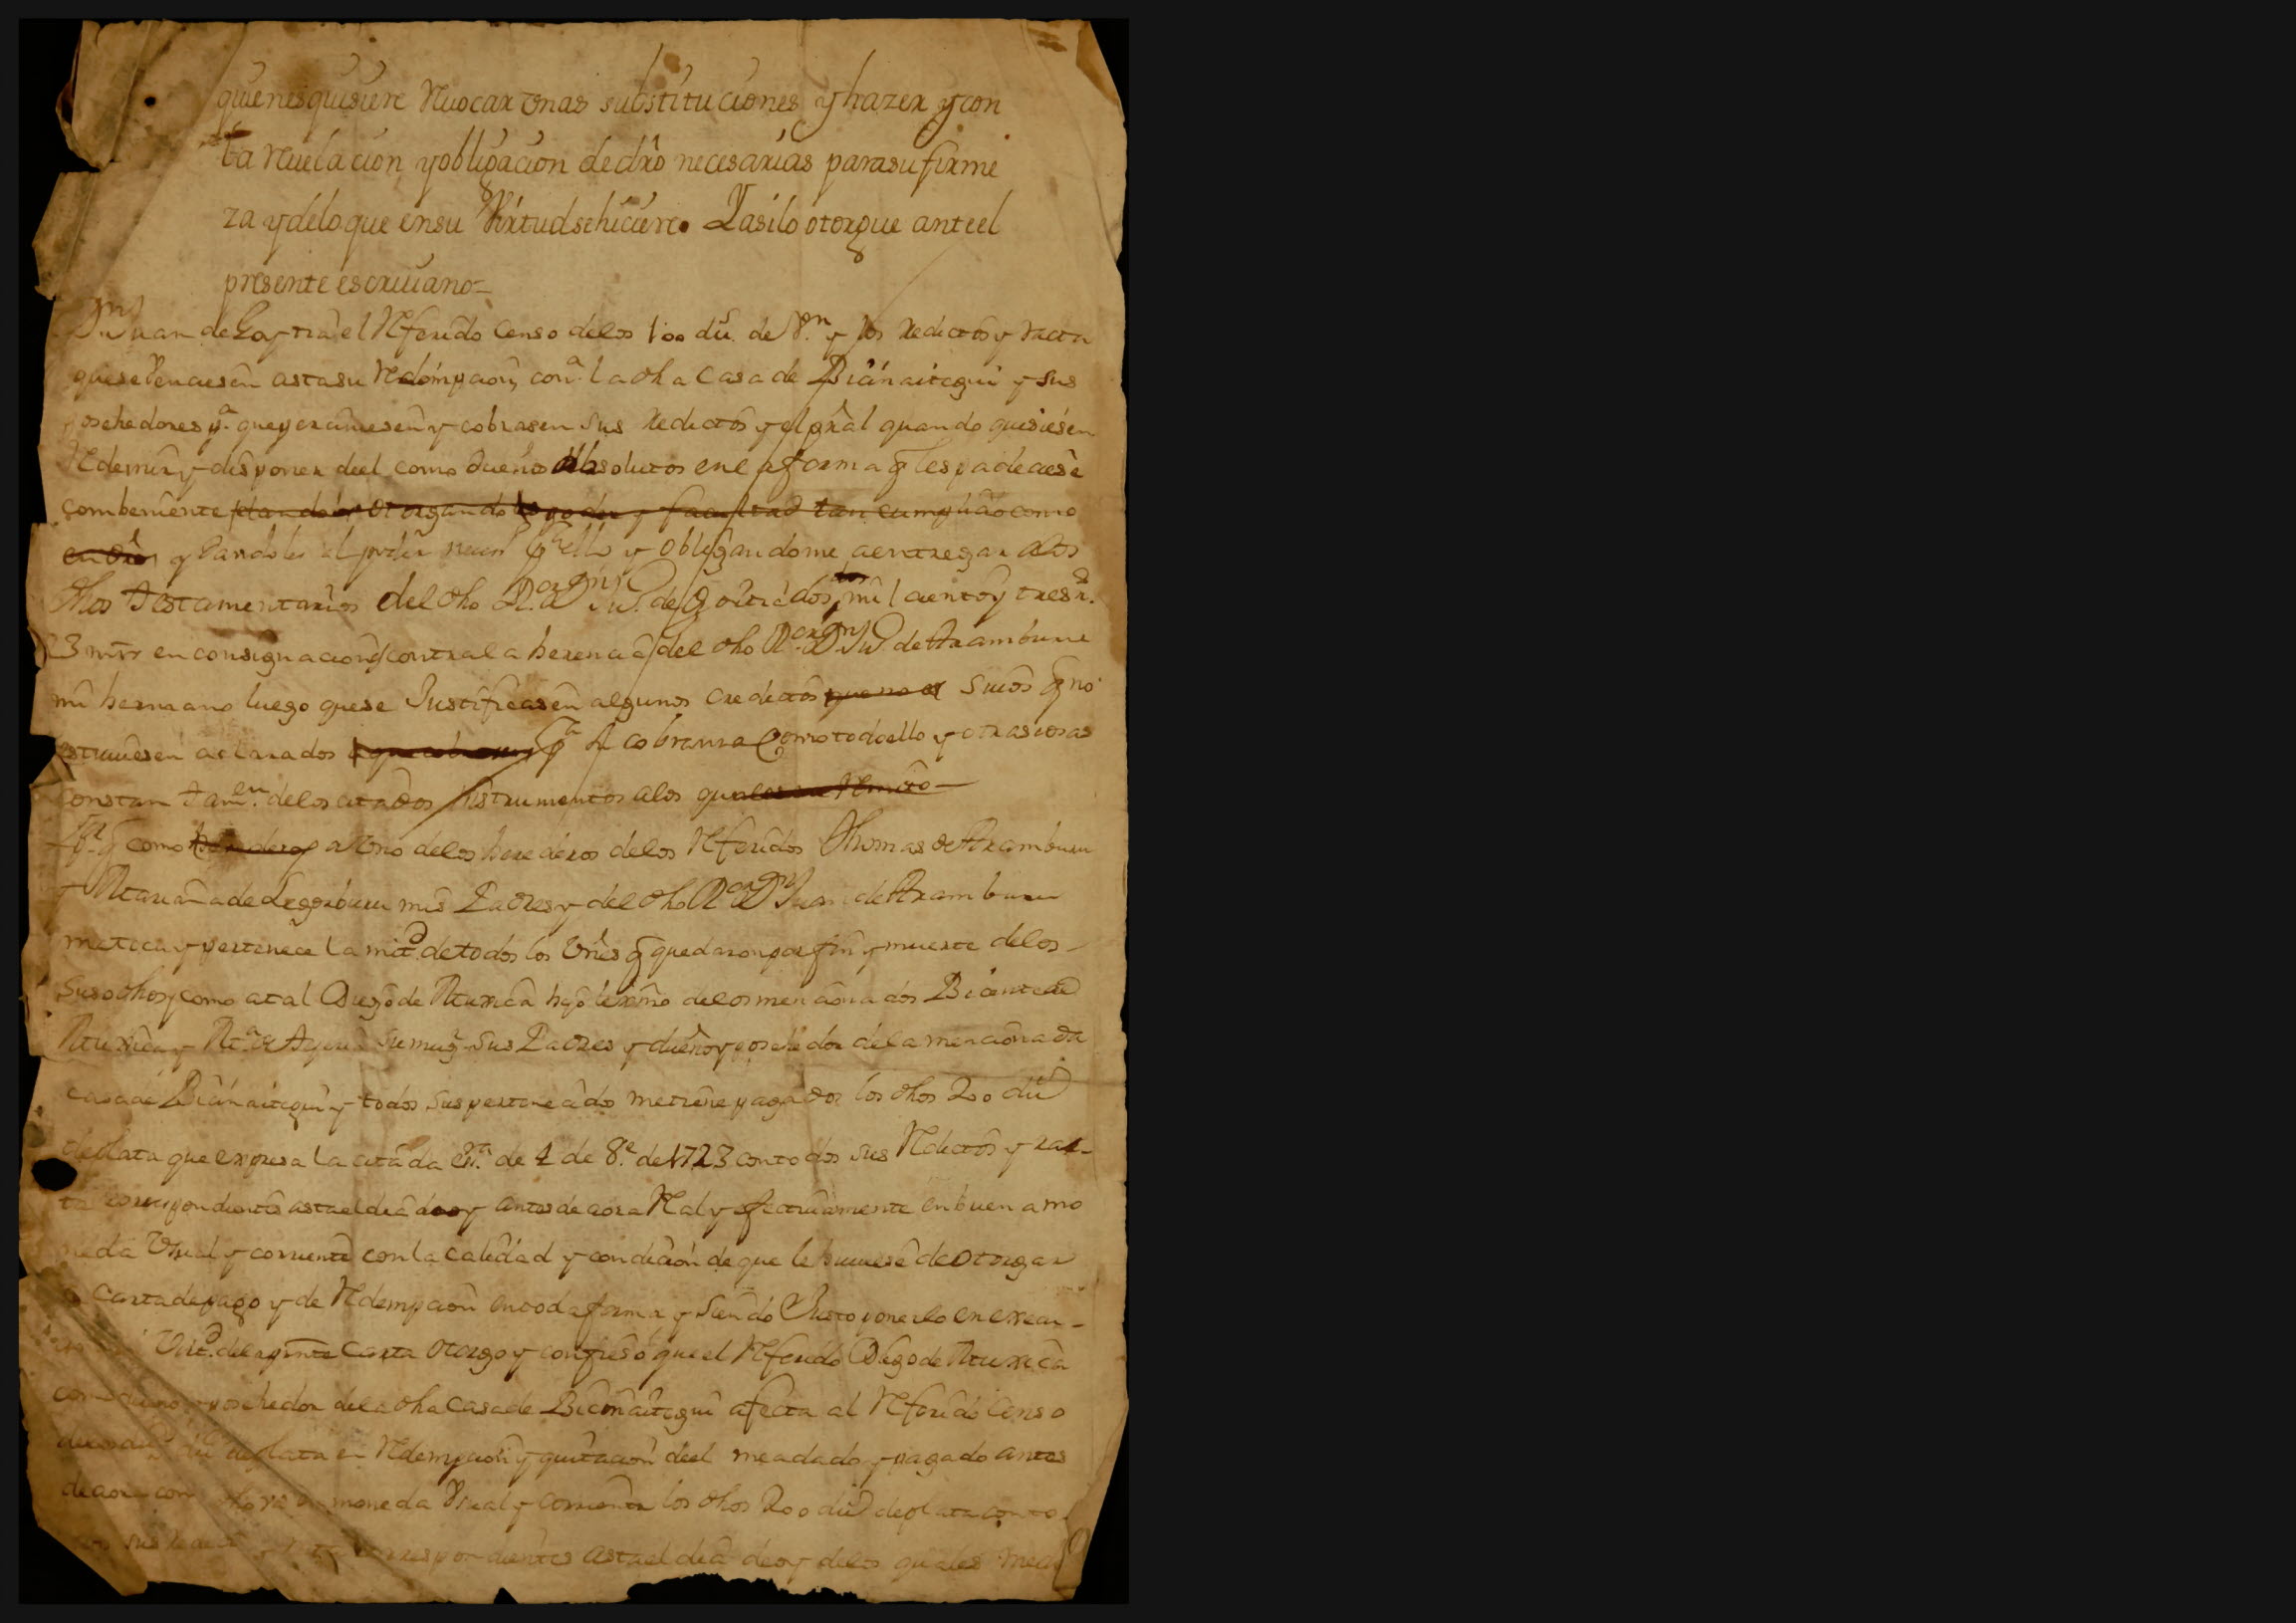 quienesquisiere Revocar Vnas substituciones y hazer y con
ta Reuelacion y obligacion de dr̃o necesarias parasufirme
za ydeloque ensu Virtudsehiciere. Yasilo otorgue anteel
presente escriuano=
Juan de Goytia el Referido Censo delos 100 du. de y los Redictos y racta
quesevenciesen astasu Redempcion, con la dha Casa de Bicinaitegui y sus
posehedores pª. que perciuiesen y cobrasen sus Redictos y el pral quando quisiesen
Redemir y disponer deel como dueños Absolutos en la forma q̃ les padeciese
combeniente otorgando poder y facultad tan cumplido como
y dandoles el poder neces.º pª ello y obligandome aentregar alos
dhos Testamentarios del dho R.or Dn Ju. de Goitia dos mil ciento y tres r.s
3 mrs en consignacion contra la herencia del dho R.or Dn Ju. de Aramburu
mi hermano luego quese Justificasen algunos credictos suios q̃ no
estuuiesen aclarados pª su cobranza Como todo ello y otras cosas
constan tamen. delos citados Instrumentos alos
como a Vno delos herederos delos Referidos Thomas de Aramburu
y Maria de mis Padres y del dho R.or Dn Juan de Aramburu
metoca y pertenece la mitd. de todos los Vienes q̃ quedaron por fin y muerte delos
Susodhos y como atal Diego de Muxica hijo lexmo delos mencionados Bicente de
Muxica y Mª. de su mug.r Sus Padres y dueño y posehedor dela mencionada
casa de Bicinaitegui y todos Suspertenecidos metiene pagados los dhos 200 du
deplata que expresa la citada esrª. de 1 de 8.e de 1723 contodos sus Redictos y rac-
ta correspondientes astael dia deoy antes de aora Real y efectiuamente en buena mo
neda Vsual y corriente con la calidad y condicion de que le huuiese de Otorgar
Cartadepago y de Redempcion entoda forma y Siendo Justo ponerlo en execu-
Virtd. dela presente Carta Otorgo y confieso que el Referido Diego de Muxica
como dueño y posehedor dela dha Casa de Bicinaitegui afecta al Referido Censo
du deplata en Redempcion y quitacion deel me a dado y pagado antes
de aora con moneda Vsual y corriente los dhos 200 du deplata conto
dos sus redictos y racta correspondientes astael dia deoy delos quales me